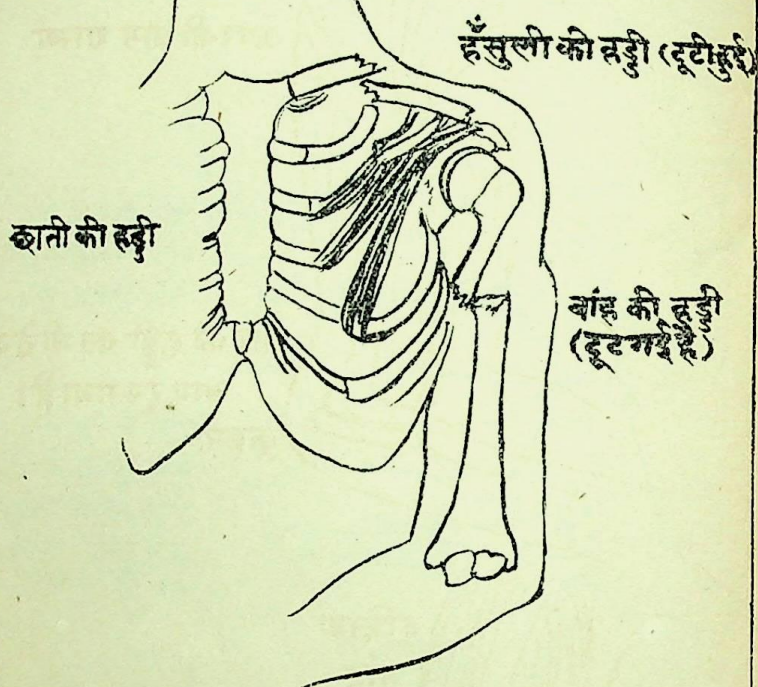 हँसुली की हड्डी (टूटी हुई)
छाती की हड्डी
बांह की हड्डी
(टूट गई है)